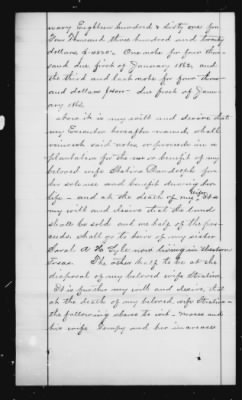 uary Eighteen hundred & sixty one for
Four thousand three hundred and twenty
dollars $4320. One note for four thou-
sand due first of January 1862, and
the third and last note for four thous-
and dollars $4000 - due first of Janu-
ary 1863.
above it is my will and desire that
my Executor hereafter named, shall
said notes or proceeds in a
plantation for the use or benefit of my
beloved wife Statira Randolph for
her sole use and benefit during her
life - and at the death of my wife It is
my will and desire that the land
shall be sold and one half of the pro-
ceeds shall go to heirs of my sister
Sarah A H Lyle now living in
Texas. The other half to be at the
disposal of my beloved wife Statira
It is further my will and desire, that
at the death of my beloved wife Statira -
the following slaves to wit - Moses and
his wife Tempy and her increase